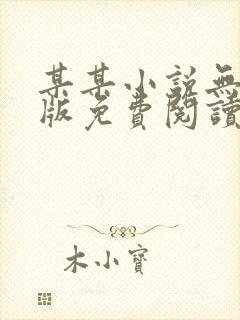 某某小説無
版免費閱讀
木小寶